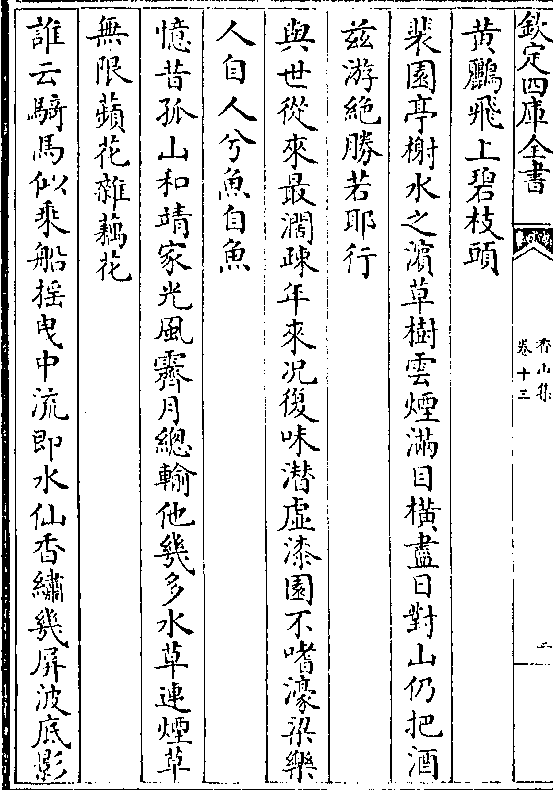 欽定四庫全書
香山集
卷十三
二
黄鸝飛上碧枝頭
裴園亭榭水之濵草樹雲煙滿目横盡日對山仍把酒
兹游絶勝若耶行
與世從來最濶踈年來况復味潜虚漆園不嗜濠梁樂
人自人兮魚自魚
憶昔孤山和靖家光風霽月總輸他幾多水草連煙草
無限蘋花雜藕花
誰云騎馬似乘船揺曳中流即水仙香繡幾屏波底影